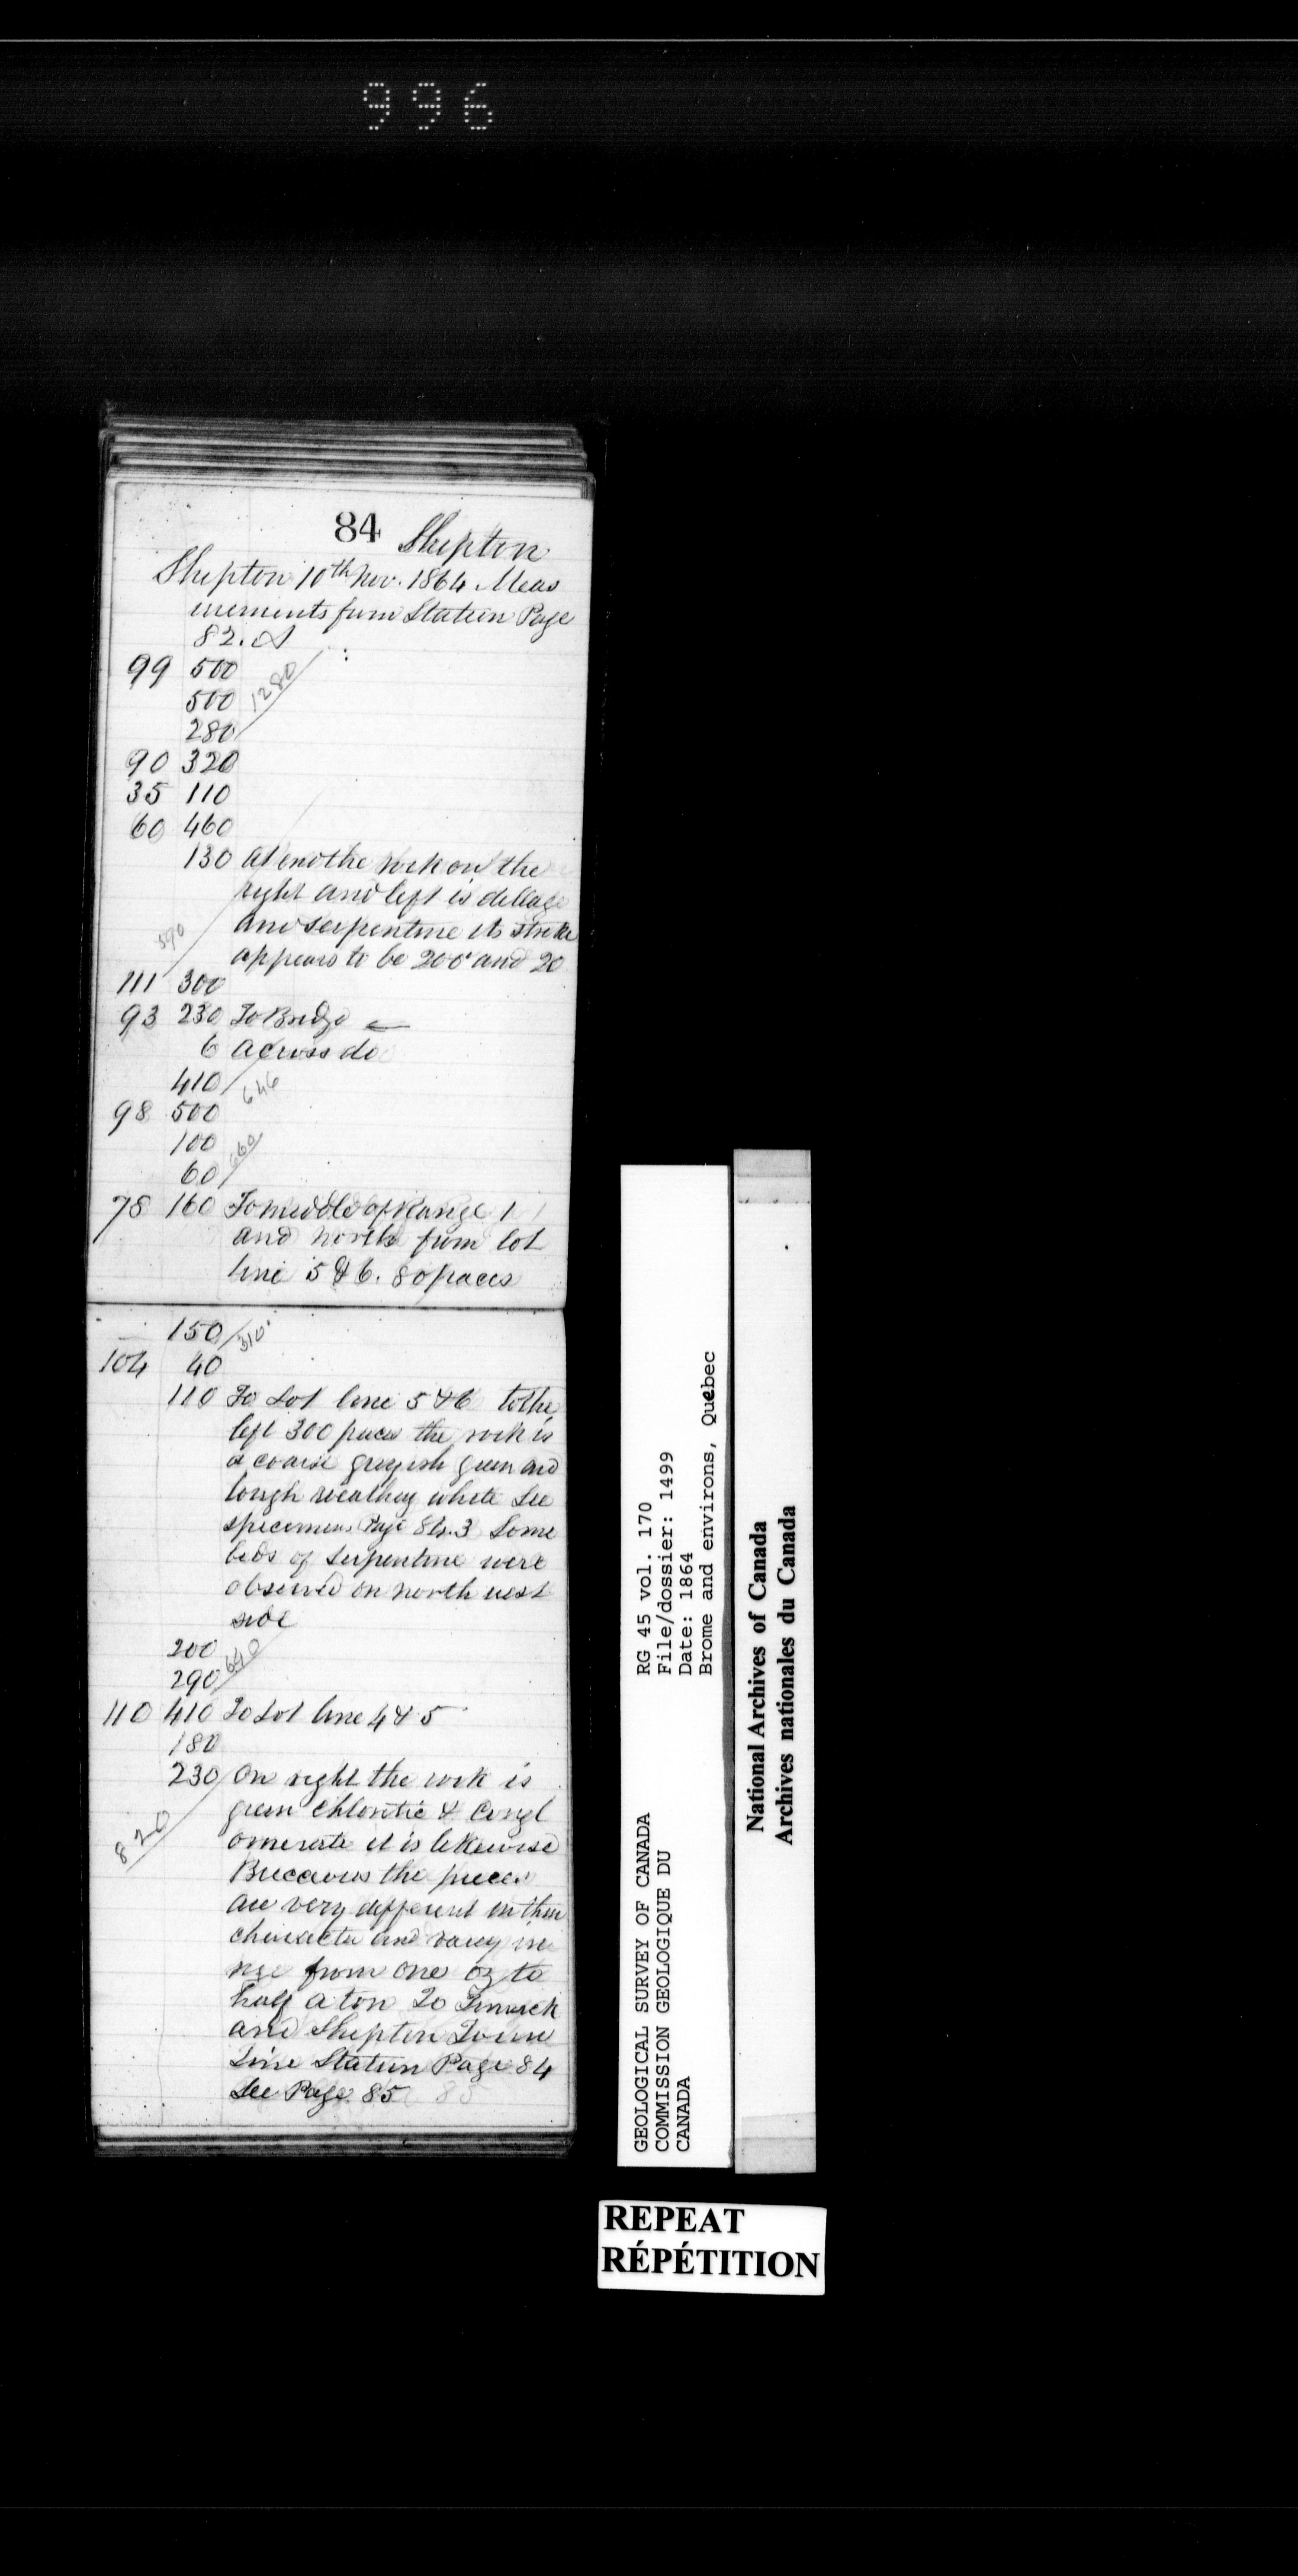 996
84 Shipton
Shipton 10th Nov. 1864 Meas
urements from Station Page
82. A
99 500
500 1280
280
90 320
35 110
60 460
130 at end the rock on the
right and left is dellage
and serpentine its strike
590
appears to be 200° and 20
111 300
93 230 To Bridge
6 across do
410 646
98 500
100
60 660
78 160 To middle of Range 1
and north from lot
line 5 & 6. 80 paces
150 310
104 40
110 To Lot line 5 & 6 to the
left 300 paces the rock is
a coarse greyish green and
tough weathey white See
specimens Page 84.3 Some
beds of Serpentine were
observed on north west
side
200 640
290
110 410 To Lot line 4 & 5
180
230 On right the rock is
green chloritic & Congl
820
omerate it is likewise
the pieces
are very different in their
character and vary in
size from one oz to
half a ton To
and Shipton Town
Line Station Page 84
See Page 85
GEOLOGICAL SURVEY OF CANADA
COMMISSION GEOLOGIQUE DU
CANADA
RG 45 vol. 170
File/dossier: 1499
Date: 1864
Brome and environs, Quebec
National Archives of Canada
Archives nationales du Canada
REPEAT
RÉPÉTITION